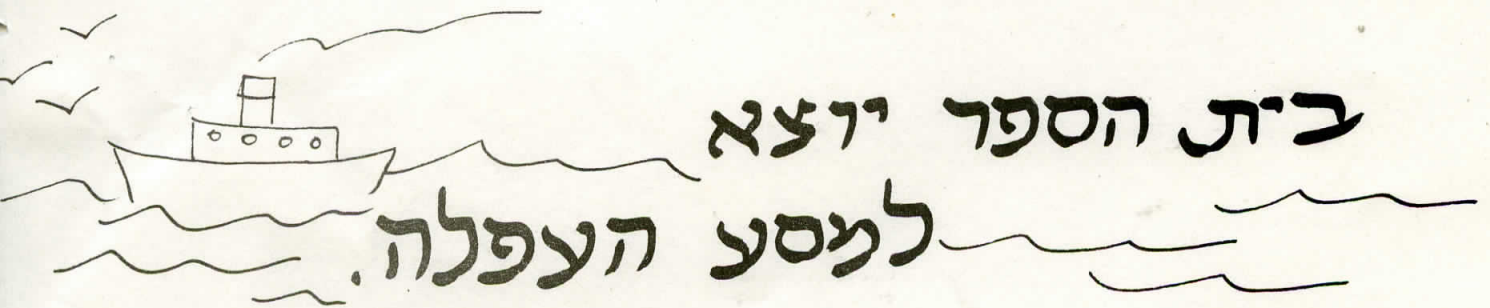 בית הספר יוצא
למסע העפלה.